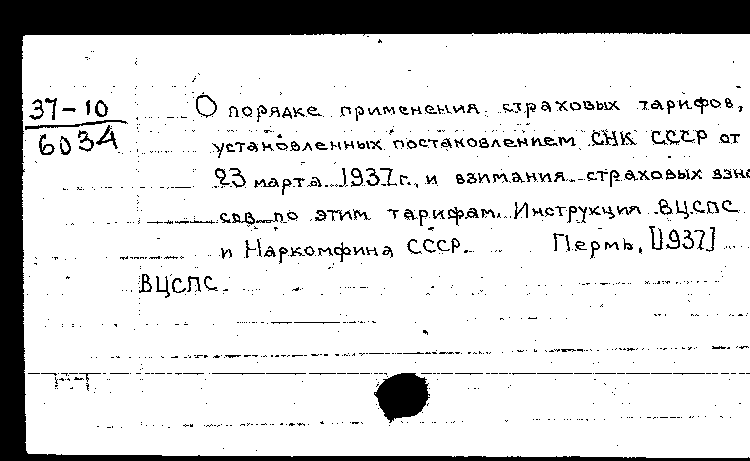 37-10
6034
О порядке применения страховых тарифов,
установленных постановлением СНК СССР от
23 марта 1937 г., и взимания страховых взно
сов по этим тарифам. Инструкция ВЦСПС
и Наркомфина СССР. Пермь, [1937]
ВЦСПС.